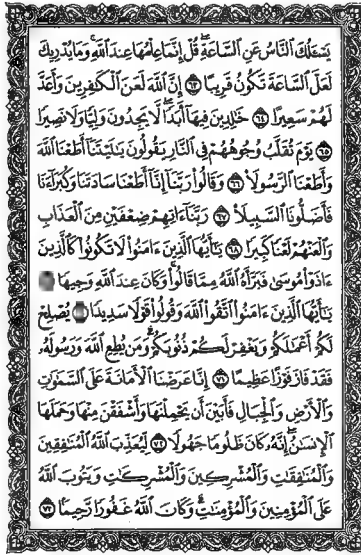 يَسْـَٔلُكَ ٱلنَّاسُ عَنِ ٱلسَّاعَةِ ۖ قُلْ إِنَّمَا عِلْمُهَا عِندَ ٱللَّهِ ۚ وَمَا يُدْرِيكَ
لَعَلَّ ٱلسَّاعَةَ تَكُونُ قَرِيبًا ٦٣ إِنَّ ٱللَّهَ لَعَنَ ٱلْكَـٰفِرِينَ وَأَعَدَّ
لَهُمْ سَعِيرًا ٦٤ خَـٰلِدِينَ فِيهَآ أَبَدًا ۖ لَّا يَجِدُونَ وَلِيًّا وَلَا نَصِيرًا
٦٥ يَوْمَ تُقَلَّبُ وُجُوهُهُمْ فِى ٱلنَّارِ يَقُولُونَ يَـٰلَيْتَنَآ أَطَعْنَا ٱللَّهَ
وَأَطَعْنَا ٱلرَّسُولَا۠ ٦٦ وَقَالُوا۟ رَبَّنَآ إِنَّآ أَطَعْنَا سَادَتَنَا وَكُبَرَآءَنَا
فَأَضَلُّونَا ٱلسَّبِيلَا۠ ٦٧ رَبَّنَآ ءَاتِهِمْ ضِعْفَيْنِ مِنَ ٱلْعَذَابِ
وَٱلْعَنْهُمْ لَعْنًا كَبِيرًا ٦٨ يَـٰٓأَيُّهَا ٱلَّذِينَ ءَامَنُوا۟ لَا تَكُونُوا۟ كَٱلَّذِينَ
ءَاذَوْا۟ مُوسَىٰ فَبَرَّأَهُ ٱللَّهُ مِمَّا قَالُوا۟ ۚ وَكَانَ عِندَ ٱللَّهِ وَجِيهًا
يَـٰٓأَيُّهَا ٱلَّذِينَ ءَامَنُوا۟ ٱتَّقُوا۟ ٱللَّهَ وَقُولُوا۟ قَوْلًا سَدِيدًا يُصْلِحْ
لَكُمْ أَعْمَـٰلَكُمْ وَيَغْفِرْ لَكُمْ ذُنُوبَكُمْ ۗ وَمَن يُطِعِ ٱللَّهَ وَرَسُولَهُۥ
فَقَدْ فَازَ فَوْزًا عَظِيمًا ٧١ إِنَّا عَرَضْنَا ٱلْأَمَانَةَ عَلَى ٱلسَّمَـٰوَٰتِ
وَٱلْأَرْضِ وَٱلْجِبَالِ فَأَبَيْنَ أَن يَحْمِلْنَهَا وَأَشْفَقْنَ مِنْهَا وَحَمَلَهَا
ٱلْإِنسَـٰنُ ۖ إِنَّهُۥ كَانَ ظَلُومًا جَهُولًا ٧٢ لِّيُعَذِّبَ ٱللَّهُ ٱلْمُنَـٰفِقِينَ
وَٱلْمُنَـٰفِقَـٰتِ وَٱلْمُشْرِكِينَ وَٱلْمُشْرِكَـٰتِ وَيَتُوبَ ٱللَّهُ
عَلَى ٱلْمُؤْمِنِينَ وَٱلْمُؤْمِنَـٰتِ ۗ وَكَانَ ٱللَّهُ غَفُورًا رَّحِيمًۢا ٧٣